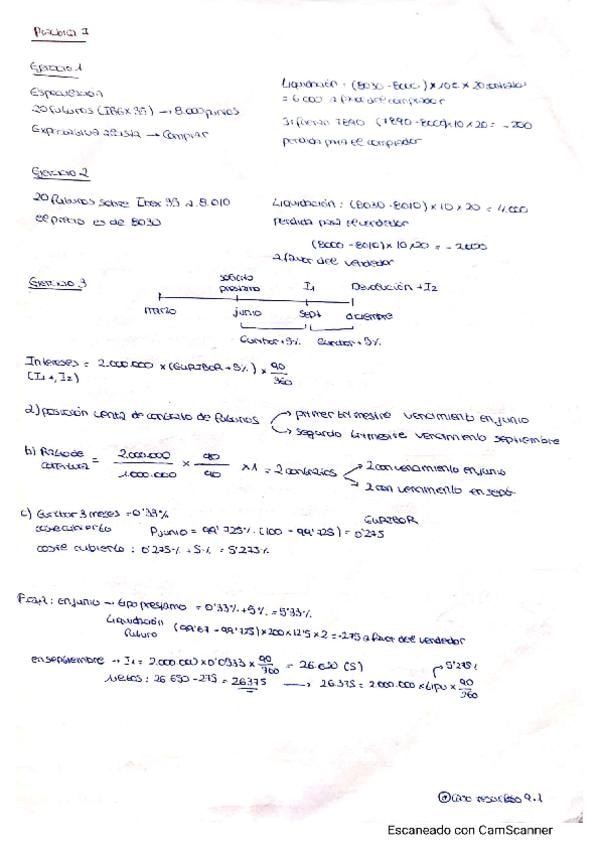 Práctica I
Ejercicio 1
Especulación
20 futuros (IBEX 35) → 8.000 puntos
Expectativa alcista → comprar
Liquidación : (8030 - 8000) × 10€ × 20 contratos
= 6.000 a favor del comprador
Si fueran 7890 (7890 - 8000) × 10 × 20 = - 200
perdida para el comprador
Ejercicio 2
20 futuros sobre Ibex 35 a 8.010
el precio es de 8030
Liquidación : (8030 - 8010) × 10 × 20 = 4.000
perdida para el vendedor
(8000 - 8010) × 10 × 20 = - 2.000
a favor del vendedor
Ejercicio 3
solicito préstamo I₁ Devolución + I2
marzo junio sept diciembre
Euribor + 5% Euribor + 5%
Intereses = 2.000.000 × (EURIBOR + 5%) × 90/360
(I₁, I₂)
a) posición venta de contrato de futuros → primer trimestre vencimiento en junio
→ segundo trimestre vencimiento septiembre
b) Ratio de cobertura = 2.000.000/1.000.000 × 90/90 × 1 = 2 contratos → 2 con vencimiento en junio
→ 2 con vencimiento en sept.
c) Euribor 3 meses = 0'33%
EURIBOR
P junio = 99'725% (100 - 99'725) = 0'275
coste cubierto : 0'275% + 5% = 5'275%
en junio → tipo prestamo = 0'33% + 5% = 5'33%
Liquidación futuro (99'67 - 99'725) × 200 × 12'5 × 2 = -275 a favor del vendedor
en septiembre → I₁ = 2.000.000 × 0'0533 × 90/360 = 26.650 (S)
Netos : 26.650 - 275 = 26375 → 26.375 = 2.000.000 × tipo × 90/360
5'275%
caso resuelto 9.1
Escaneado con CamScanner